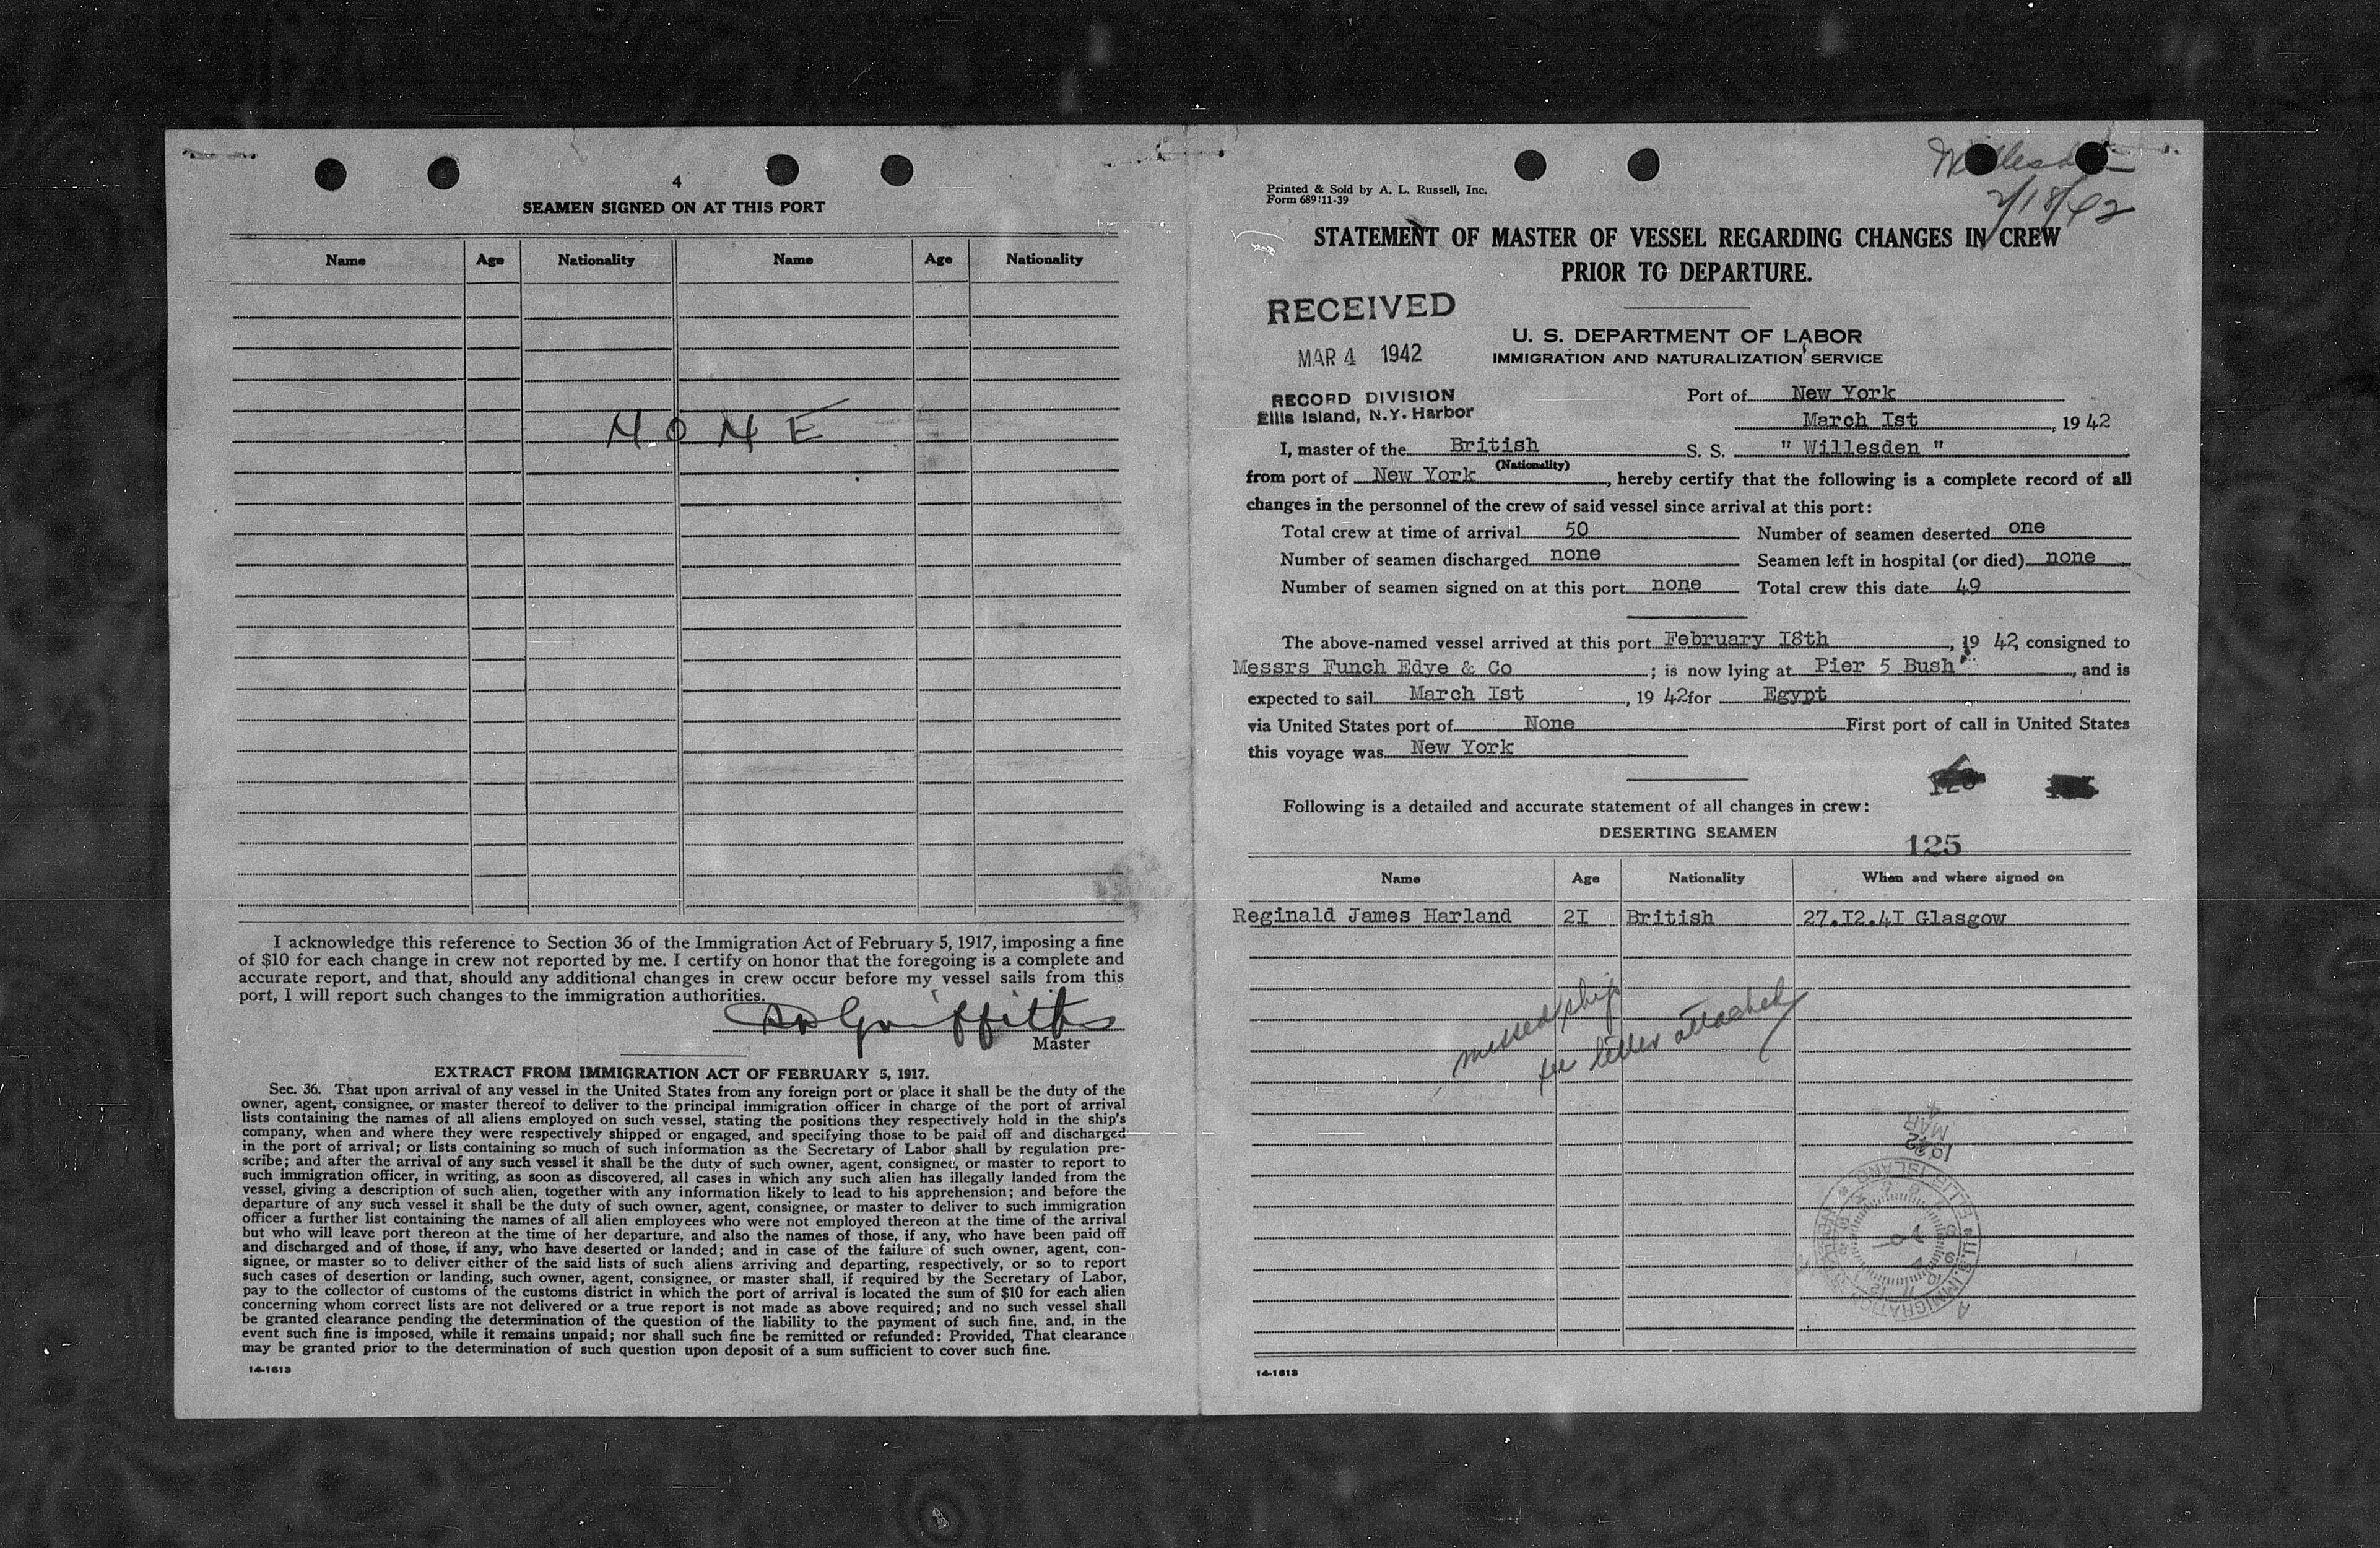 4
SEAMEN SIGNED ON AT THIS PORT
Name Age Nationality Name Age Nationality
NONE
I acknowledge this reference to Section 36 of the Immigration Act of February 5, 1917, imposing a fine
of $10 for each change in crew not reported by me. I certify on honor that the foregoing is a complete and
accurate report, and that, should any additional changes in crew occur before my vessel sails from this
port, I will report such changes to the immigration authorities.
Griffiths
Master
EXTRACT FROM IMMIGRATION ACT OF FEBRUARY 5, 1917.
Sec. 36. That upon arrival of any vessel in the United States from any foreign port or place it shall be the duty of the
owner, agent, consignee, or master thereof to deliver to the principal immigration officer in charge of the port of arrival
lists containing the names of all aliens employed on such vessel, stating the positions they respectively hold in the ship's
company, when and where they were respectively shipped or engaged, and specifying those to be paid off and discharged
in the port of arrival; or lists containing so much of such information as the Secretary of Labor shall by regulation pre-
scribe; and after the arrival of any such vessel it shall be the duty of such owner, agent, consignee, or master to report to
such immigration officer, in writing, as soon as discovered, all cases in which any such alien has illegally landed from the
vessel, giving a description of such alien, together with any information likely to lead to his apprehension; and before the
departure of any such vessel it shall be the duty of such owner, agent, consignee, or master to deliver to such immigration
officer a further list containing the names of all alien employees who were not employed thereon at the time of the arrival
but who will leave port thereon at the time of her departure, and also the names of those, if any, who have been paid off
and discharged and of those, if any, who have deserted or landed; and in case of the failure of such owner, agent, con-
signee, or master so to deliver either of the said lists of such aliens arriving and departing, respectively, or so to report
such cases of desertion or landing, such owner, agent, consignee, or master shall, if required by the Secretary of Labor,
pay to the collector of customs of the customs district in which the port of arrival is located the sum of $10 for each alien
concerning whom correct lists are not delivered or a true report is not made as above required; and no such vessel shall
be granted clearance pending the determination of the question of the liability to the payment of such fine, and, in the
event such fine is imposed, while it remains unpaid; nor shall such fine be remitted or refunded: Provided, That clearance
may be granted prior to the determination of such question upon deposit of a sum sufficient to cover such fine.
14-1613
Willesden
2/18/42
Printed & Sold by A. L. Russell, Inc.
Form 689:11-39
STATEMENT OF MASTER OF VESSEL REGARDING CHANGES IN CREW
PRIOR TO DEPARTURE.
RECEIVED
MAR 4 1942
RECORD DIVISION
Ellis Island, N.Y. Harbor
U. S. DEPARTMENT OF LABOR
IMMIGRATION AND NATURALIZATION SERVICE
Port of New York
March Ist, 1942
I, master of the British S. S. " Willesden "
(Nationality)
from port of New York, hereby certify that the following is a complete record of all
changes in the personnel of the crew of said vessel since arrival at this port:
Total crew at time of arrival 50 Number of seamen deserted one
Number of seamen discharged none Seamen left in hospital (or died) none
Number of seamen signed on at this port none Total crew this date 49
The above-named vessel arrived at this port February I8th, 19 42 consigned to
Messrs Funch Edye & Co; is now lying at Pier 5 Bush, and is
expected to sail March Ist, 19 42 for Egypt
via United States port of None First port of call in United States
this voyage was New York
Following is a detailed and accurate statement of all changes in crew:
DESERTING SEAMEN
125
Name Age Nationality When and where signed on
Reginald James Harland 2I British 27.I2.4I Glasgow
missed ship
see letter attached
1942
MAR
4
U.S. IMMIGRATION
ELLIS ISLAND